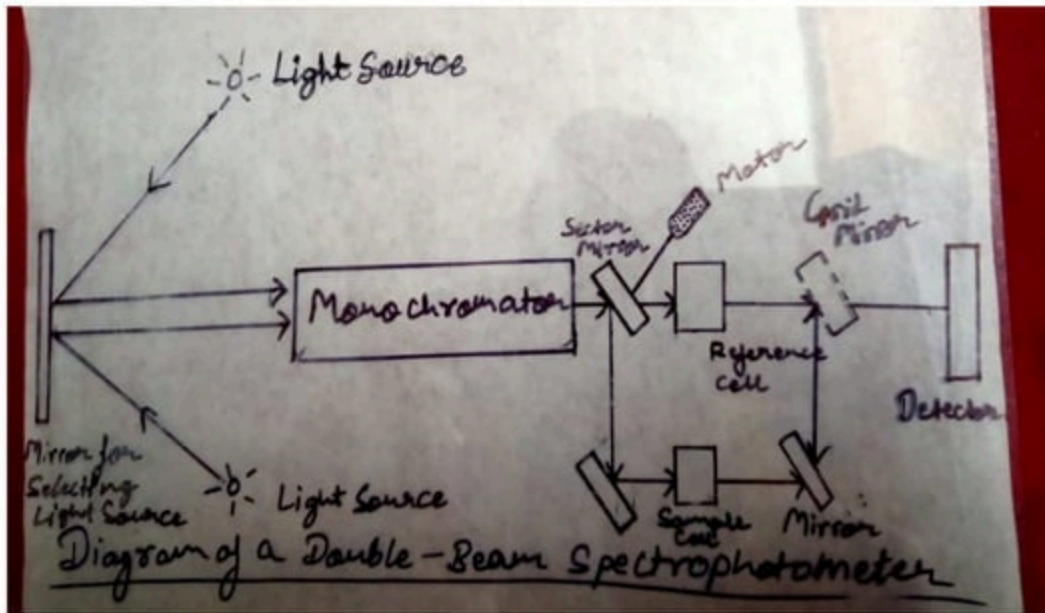 Light Source
Motor
Sector
Mirror
Grid
Mirror
Monochromator
Reference
Cell
Detector
Mirror for
Selecting
Light Source
Light Source
Sample
Cell
Mirror
Diagram of a Double-Beam Spectrophotometer